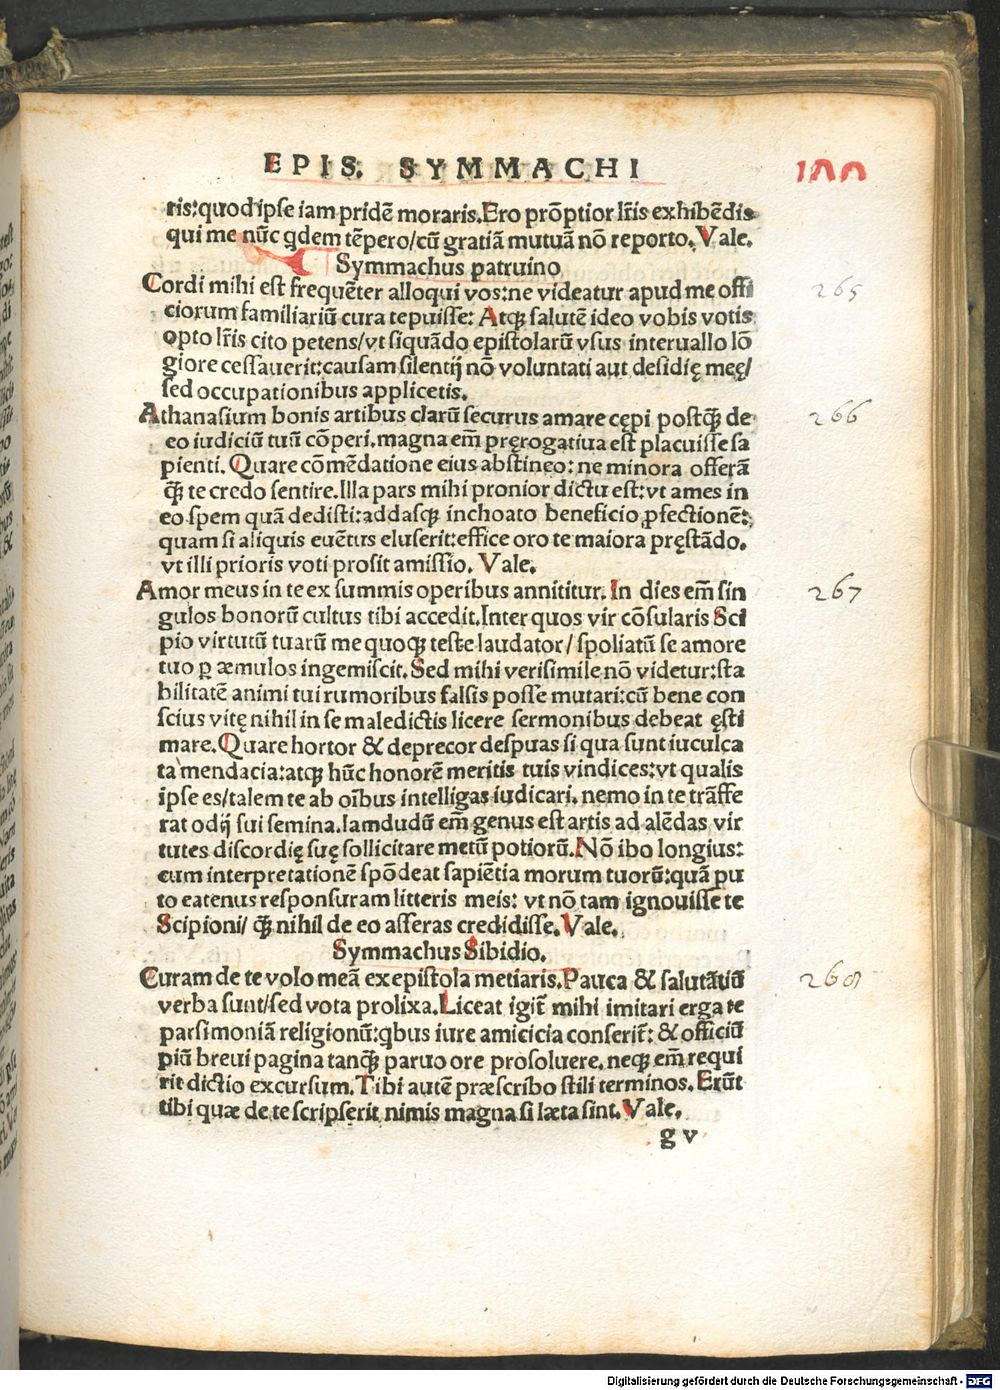 EPIS. SYMMACHI
100
ris:quod ipse iam pridē moraris.Ero prōptior lr̄is exhibēdis
qui me nūc qdem tēpero/cū gratiā mutuā nō reporto. Vale.
Symmachus patruino
Cordi mihi est frequēter alloqui vos:ne videatur apud me offi
ciorum familiariū cura tepuisse: Atqꝫ salutē ideo vobis votis
opto lr̄is cito petens/vt siquādo epistolarū vsus interuallo lō
giore cessauerit:causam silentij nō voluntati aut desidię meę/
sed occupationibus applicetis.
265
Athanasium bonis artibus clarū securus amare cępi postꝙ̄ de
eo iudiciū tuū cōperi.magna em̄ pręrogatiua est placuisse sa
pienti. Quare cōmēdatione eius abstineo: ne minora offerā
ꝙ̄ te credo sentire.Illa pars mihi pronior dictu est:vt ames in
eo spem quā dedisti:addasqꝫ inchoato beneficio ꝓfectionē:
quam si aliquis euētus eluserit:effice oro te maiora pręstādo.
vt illi prioris voti prosit amissio. Vale.
266
Amor meus in te ex summis operibus annititur. In dies em̄ sin
gulos bonorū cultus tibi accedit.Inter quos vir cōsularis Sci
pio virtutū tuarū me quoqꝫ teste laudator/ spoliatū se amore
tuo ꝑ æmulos ingemiscit. Sed mihi verisimile nō videtur:sta
bilitatē animi tui rumoribus falsis posse mutari:cū bene con
scius vitę nihil in se maledictis licere sermonibus debeat ęsti
mare. Quare hortor & deprecor despuas si qua sunt iuculca
ta mendacia:atqꝫ hūc honorē meritis tuis vindices:vt qualis
ipse es/talem te ab oībus intelligas iudicari. nemo in te trāffe
rat odij sui semina.Iamdudū em̄ genus est artis ad alēdas vir
tutes discordię suę sollicitare metū potiorū.Nō ibo longius:
cum interpretationē spōdeat sapiētia morum tuorū:quā pu
to eatenus responsuram litteris meis: vt nō tam ignouisse te
Scipioni/ ꝙ̄ nihil de eo asseras credidisse. Vale.
267
Symmachus Sibidio.
Curam de te volo meā ex epistola metiaris.Pauca & salutātiū
verba sunt/sed vota prolixa.Liceat igit̄ mihi imitari erga te
parsimoniā religionū:qbus iure amicicia conferit̄: & officiū
piū breui pagina tanꝙ̄ paruo ore prosoluere. neqꝫ em̄ requi
rit dictio excursum.Tibi autē præscribo stili terminos. Erūt
tibi quæ de te scripserit nimis magna si læta sint. Vale.
268
g v
Digitalisierung gefördert durch die Deutsche Forschungsgemeinschaft - DFG